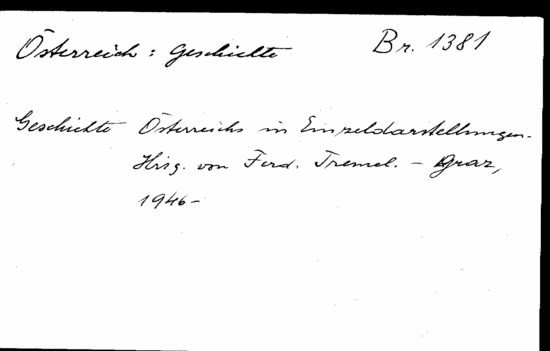 Österreich : Geschichte Br. 1381
Geschichte Österreichs in Einzeldarstellungen.
Hrsg. von Ferd. Tremel. – Graz,
1946 –